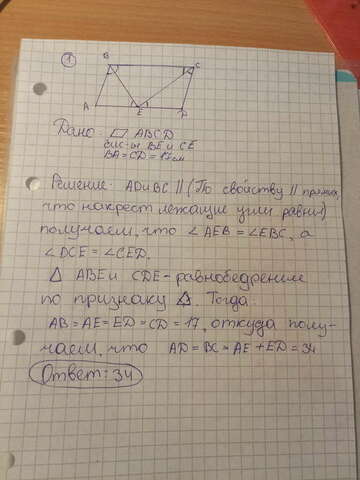 1
B
C
A
E
D
Дано: ▱ ABCD
бис-ы BE и CE
BA = CD = 17 см
Решение: AD и BC || (По свойству || прямых,
что накрест лежащие углы равны)
получаем, что ∠AEB = ∠EBC, а
∠DCE = ∠CED.
△ ABE и CDE - равнобедренные
по признаку △. Тогда:
AB = AE = ED = CD = 17, откуда полу-
чаем, что AD = BC = AE + ED = 34
Ответ: 34